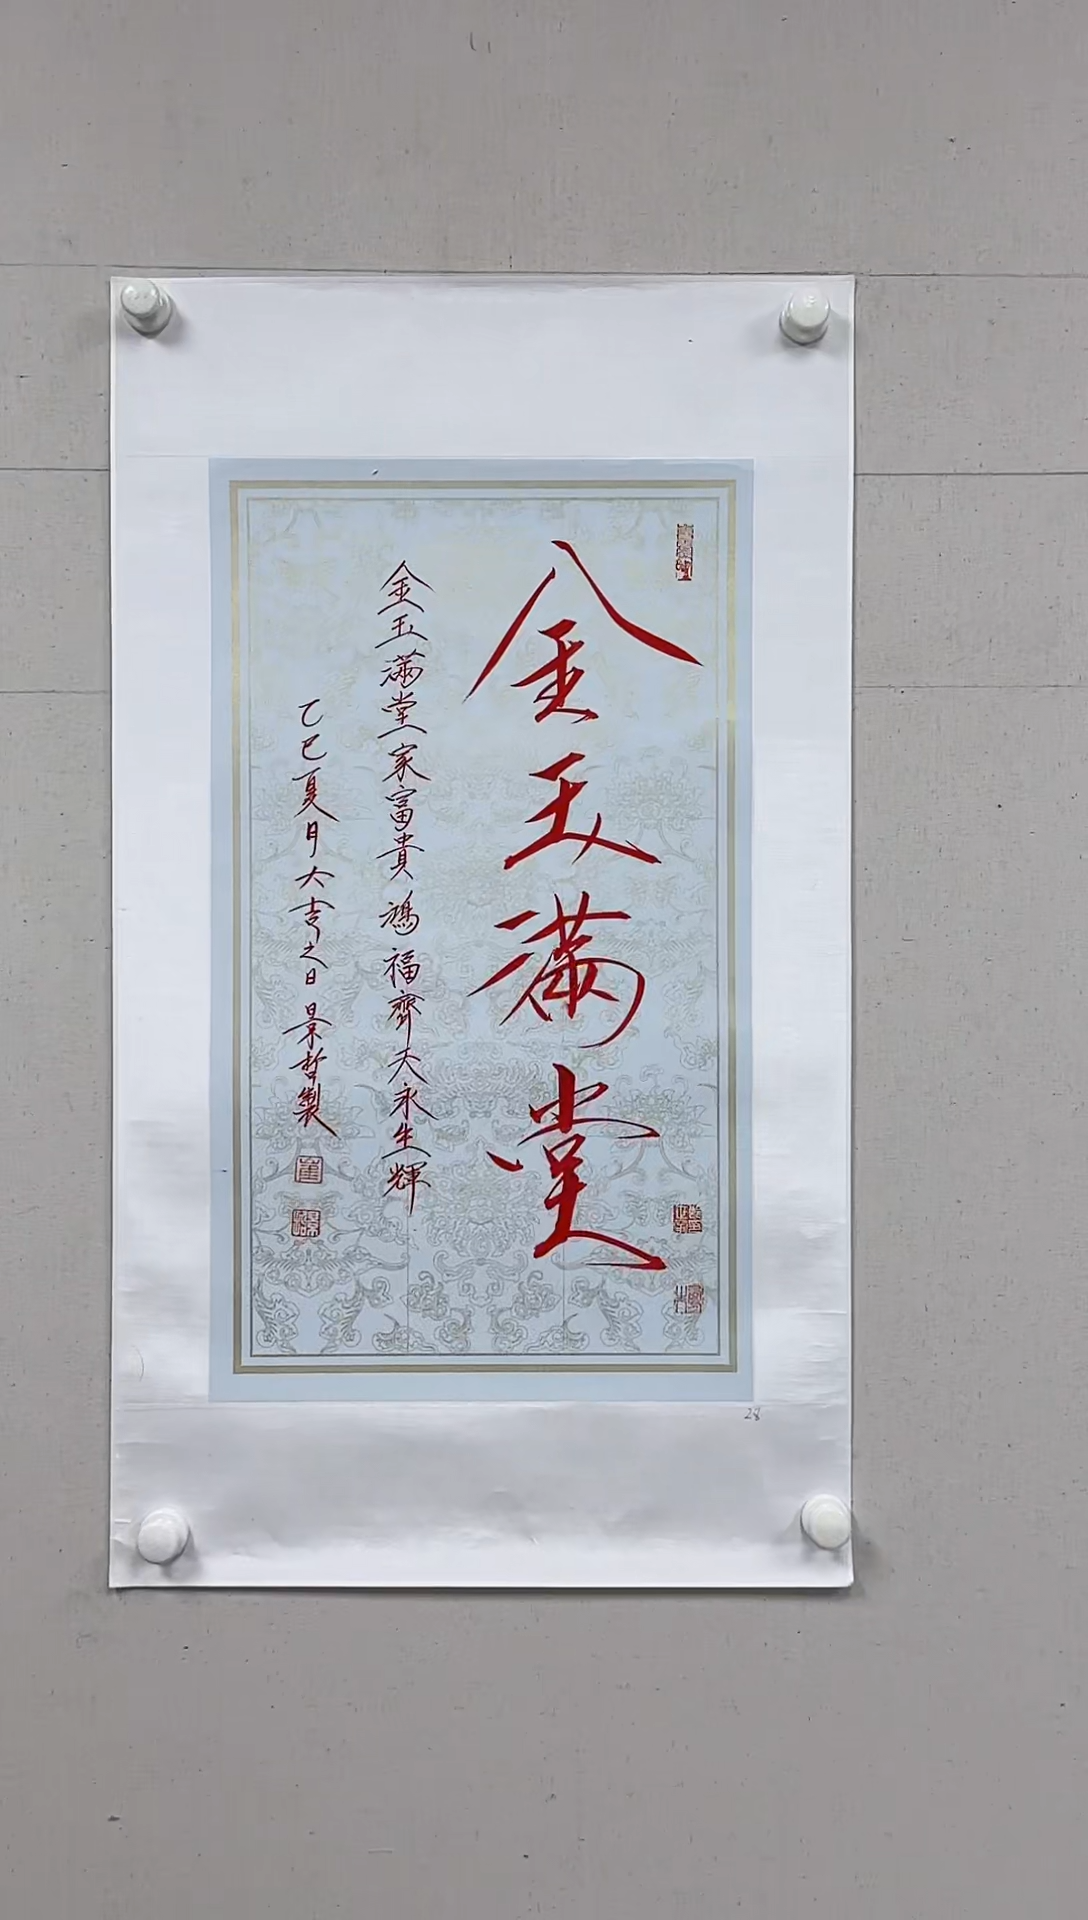 金玉滿堂
金玉滿堂家富貴鴻福齊天永生輝
乙巳夏月大吉之日景哲製
28